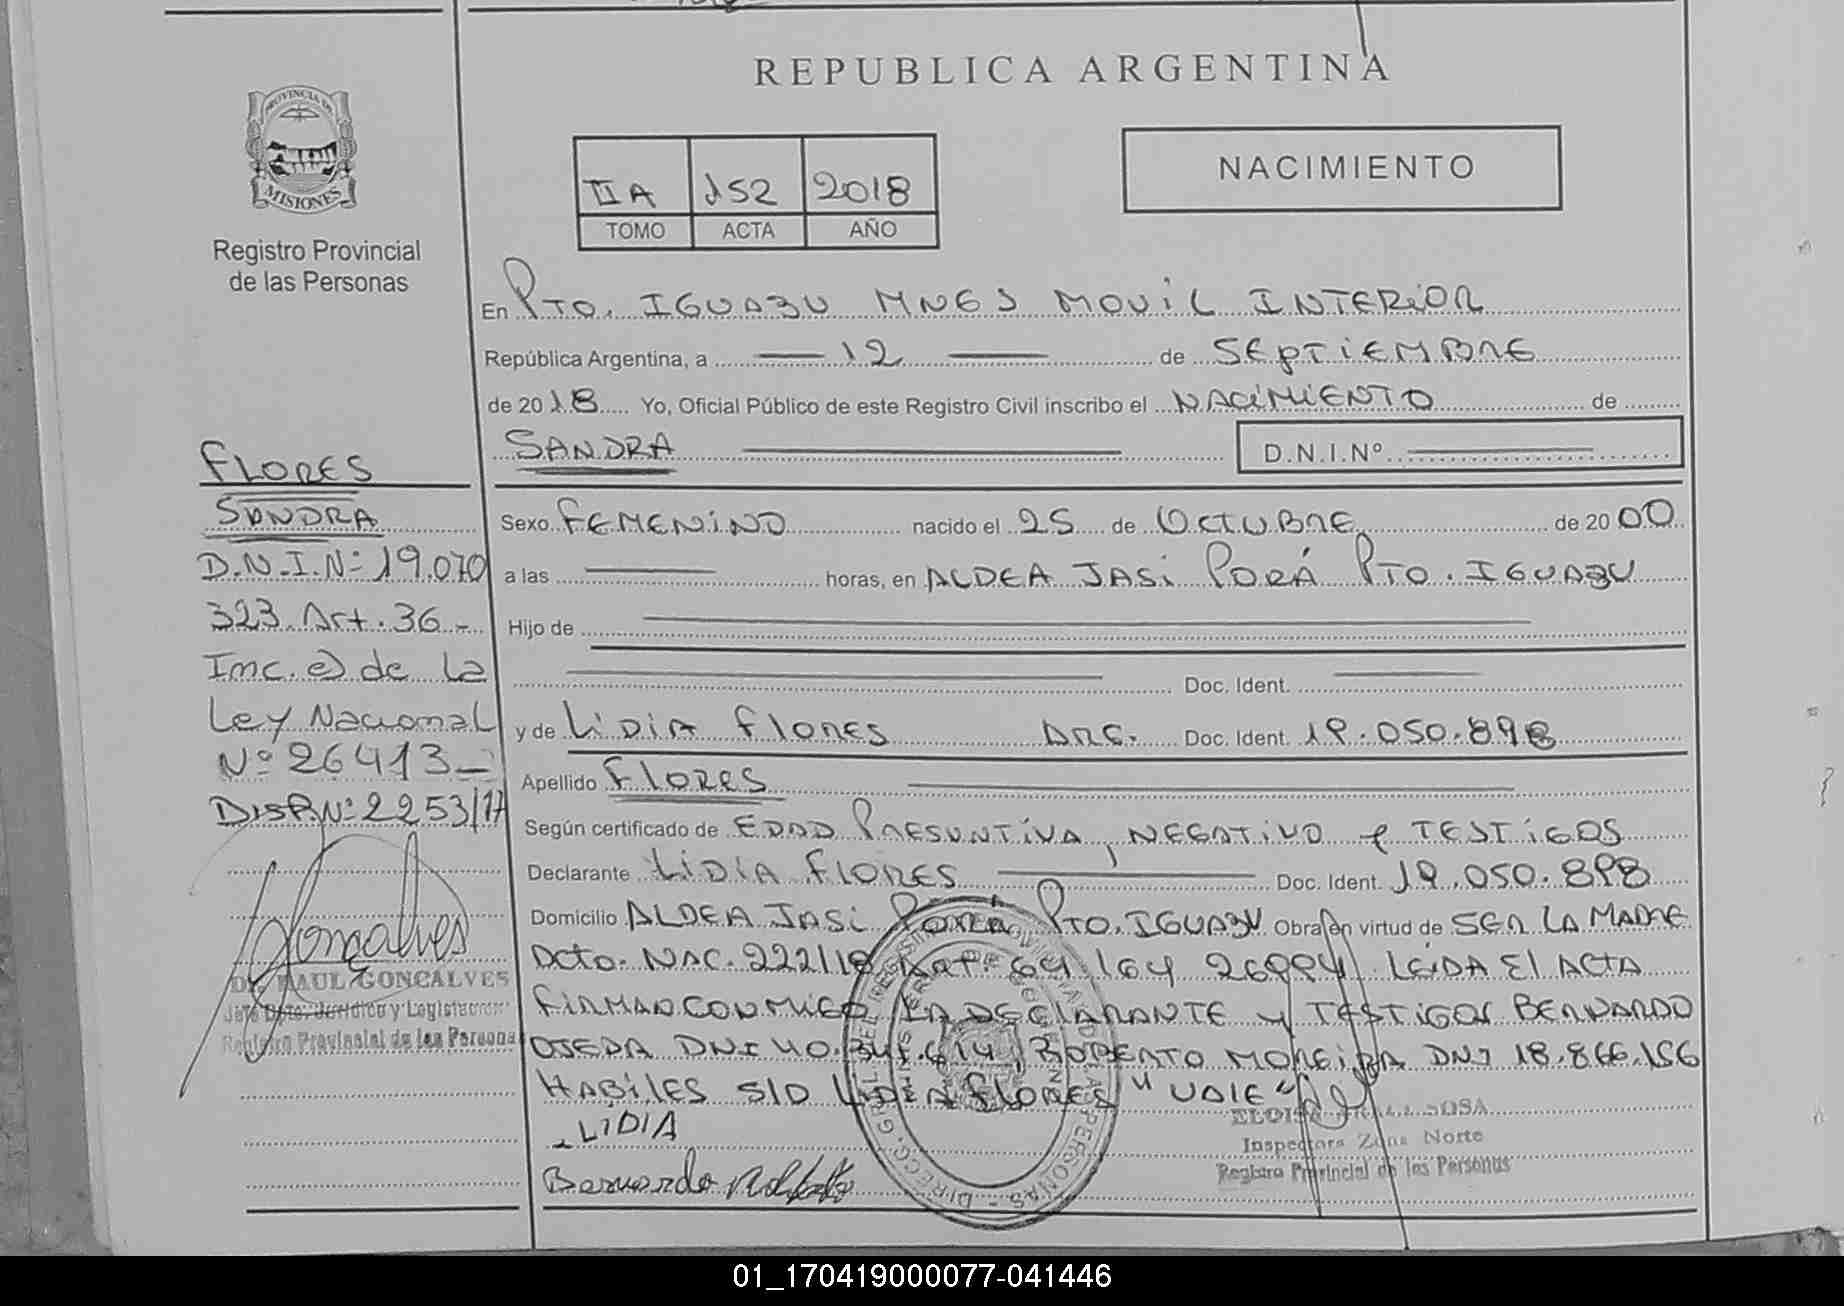 REPUBLICA ARGENTINA
PROVINCIA DE
MISIONES
Registro Provincial
de las Personas
II A 152 2018
TOMO ACTA AÑO
NACIMIENTO
En PTO. IGUAZU MNES MOVIL INTERIOR
República Argentina, a 12 de SEPTIEMBRE
de 2018 Yo, Oficial Público de este Registro Civil inscribo el NACIMIENTO de
SANDRA D.N.I.Nº
Sexo FEMENINO nacido el 25 de OCTUBRE de 2000
a las horas, en ALDEA JASI PORÁ PTO. IGUAZU
Hijo de
Doc. Ident.
y de LIDIA FLORES ARG. Doc. Ident. 19.050.898
Apellido FLORES
Según certificado de EDAD PRESUNTIVA, NEGATIVO y TESTIGOS
Declarante LIDIA FLORES Doc. Ident. 19.050.898
Domicilio ALDEA JASI PORÁ PTO. IGUAZU Obra en virtud de SER LA MADRE
Dcto. NAC. 222/18 Art. 64 LEIDA EL ACTA
FIRMAN CONMIGO LA DECLARANTE y TESTIGOS BERNARDO
OJEDA DNI 40. ROBERTO MOREIRA DNI 18.866.156
HABILES S/D LIDIA FLORES " VALE "
LIDIA
Bernardo
ELOISA SOSA
Inspectora Zona Norte
Registro Provincial de las Personas
FLORES
SANDRA
D.N.I.Nº 19.070
323 Art. 36 -
Inc. e) de la
Ley Nacional
Nº 26413 -
DISP. Nº 2253/17
Gonçalves
Dr. RAUL GONCALVES
Jefe Dpto. Jurídico y Legislación
Registro Provincial de las Personas
01_170419000077-041446